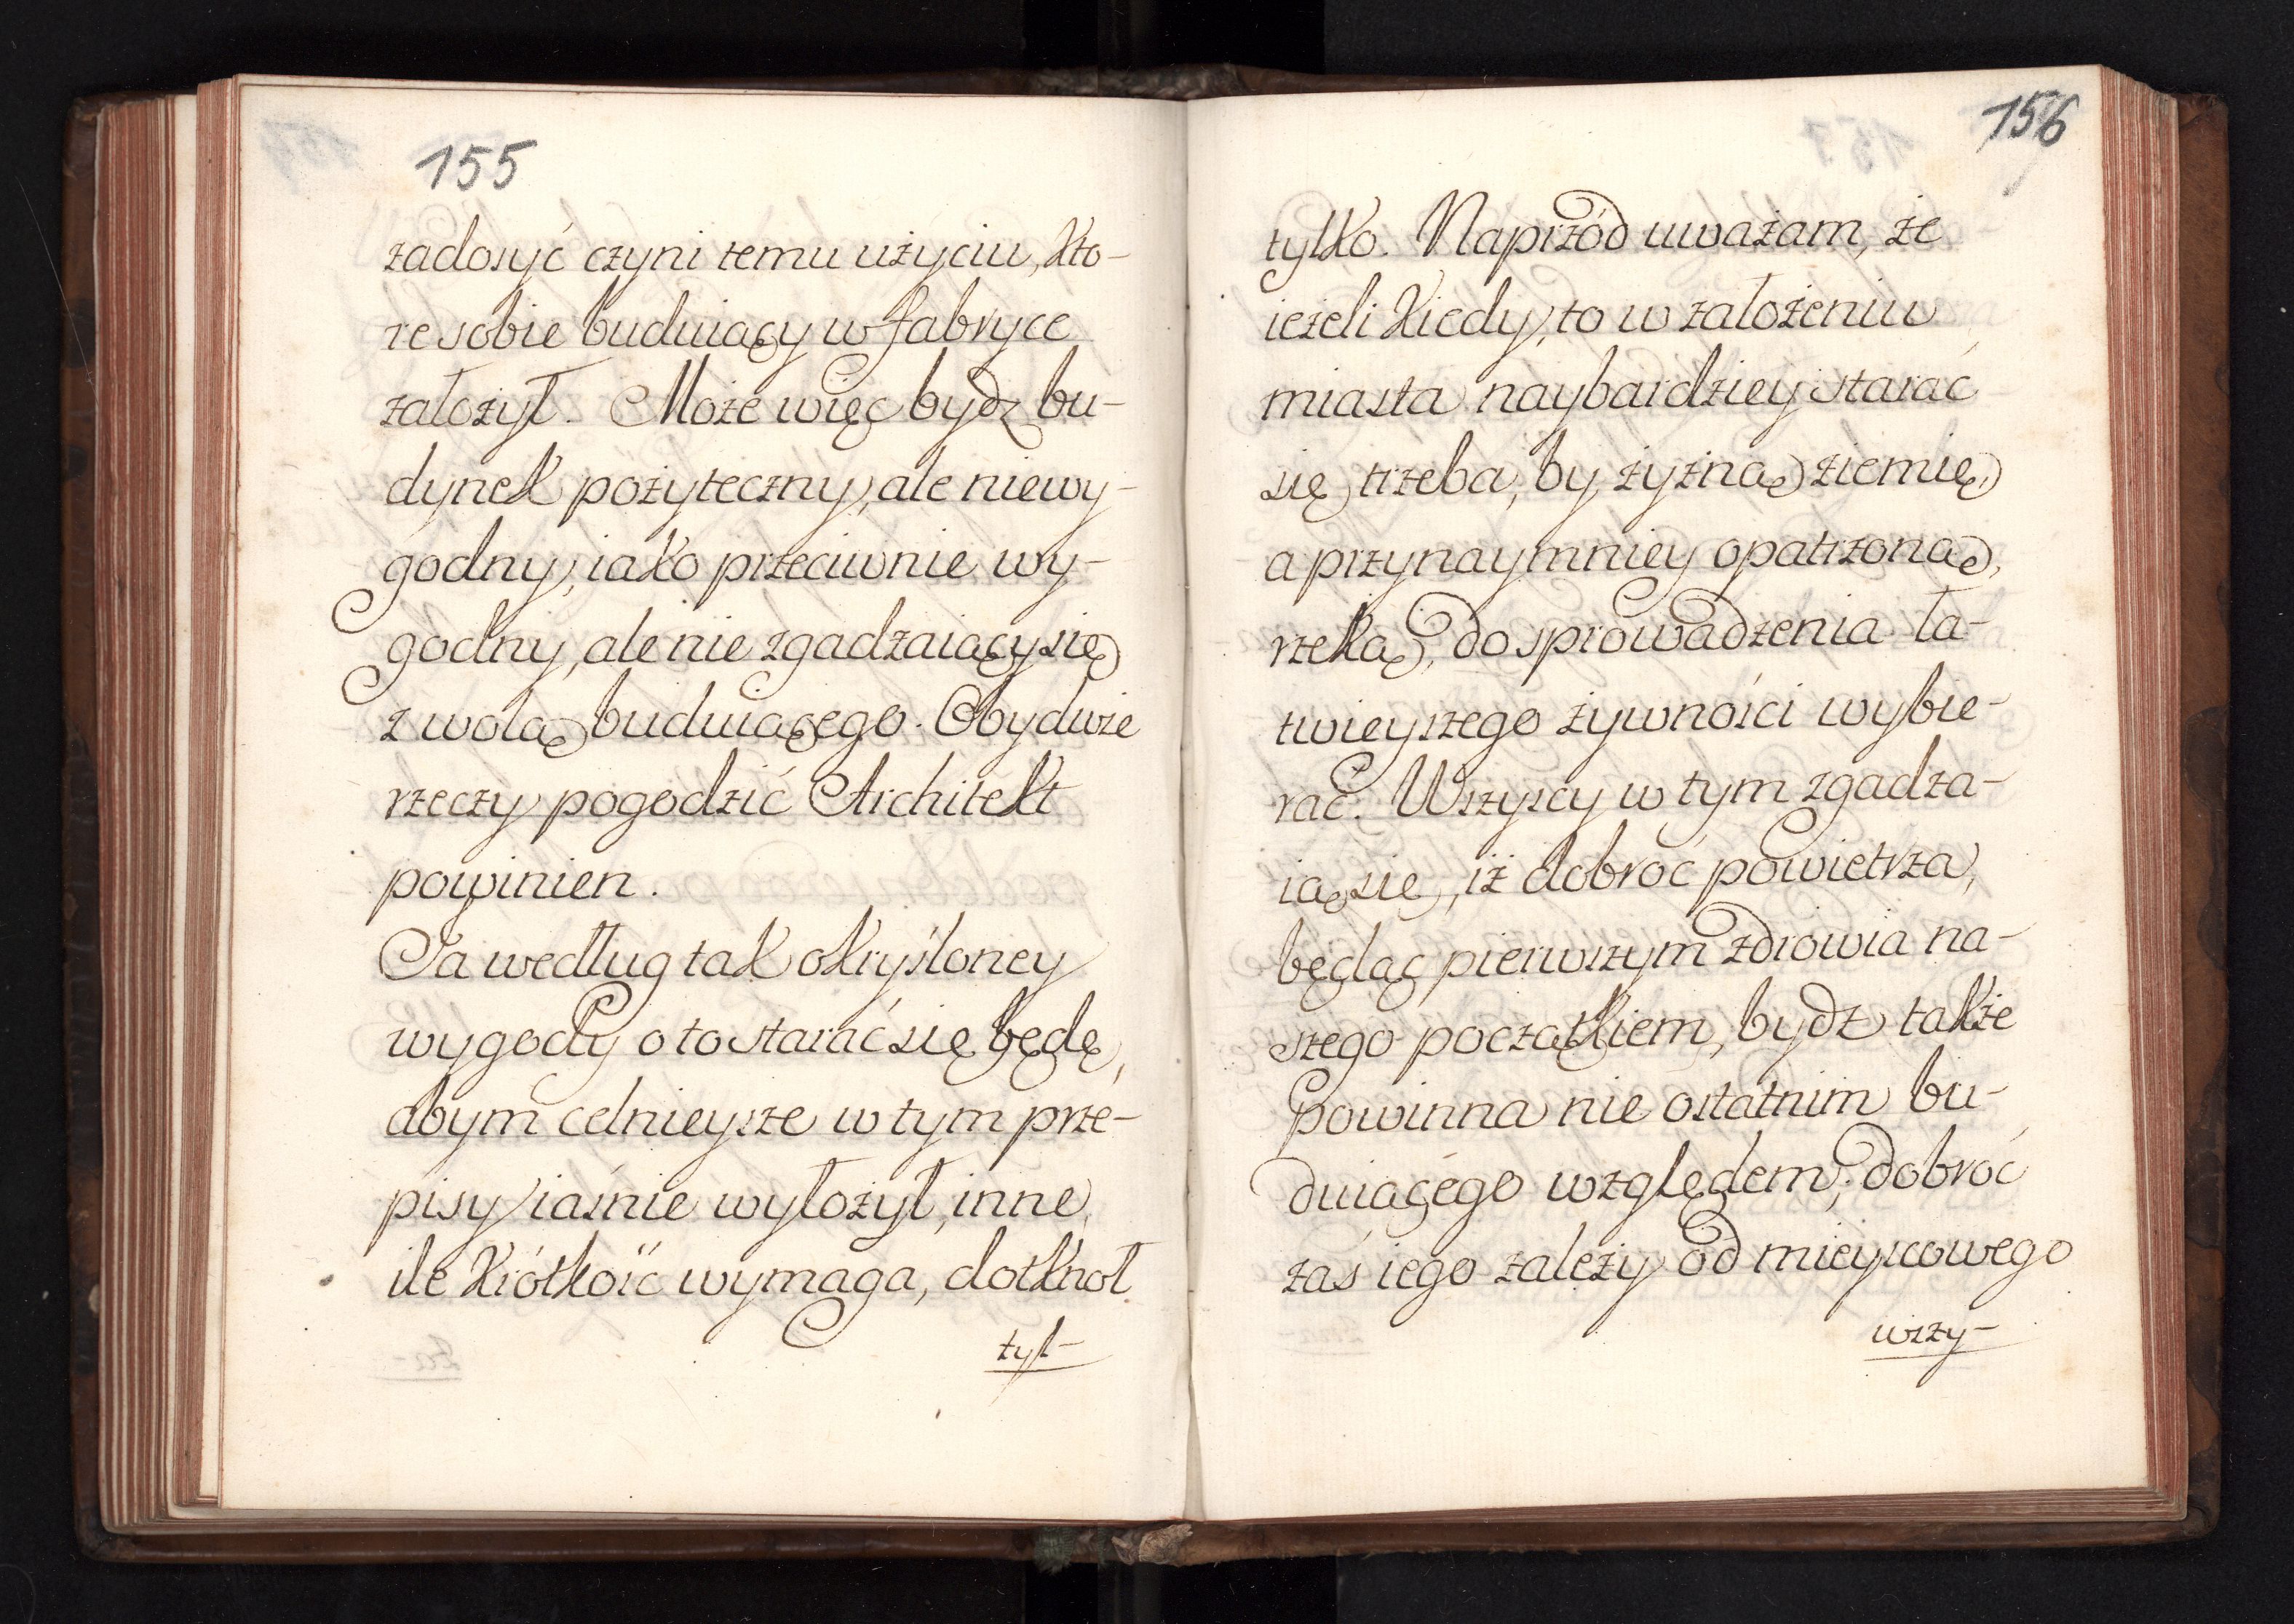 155
zadosyć czyni temu użyciu, kto-
re sobie buduiący w fabryce
założył. Może więc bydz bu-
dynek pożyteczny, ale niewy-
godny, iako przeciwnie wy-
godny, ale nie zgadzaiący się
z wolą buduiącego. Obydwie
rzeczy pogodzić Architekt
powinien.
Ja według tak okryśloney
wygody o to starać się będę,
abym celnieysze w tym prze-
pisy iaśnie wyłożył, inne,
ile krótkość wymaga, dotknoł
tyl-
156
tylko. Naprzód uważam, że
ieżeli kiedy, to w założeniu
miasta naybardziey starać
się trzeba, by żyzną ziemię,
a przynaymniey opatrzoną,
rzeką, do sprowadzenia ła-
twieyszego żywności wybie-
rać. Wszyscy w tym zgadza-
ią się, iż dobroć powietrza,
będąc pierwszym zdrowia na-
szego początkiem, bydz także
powinna nie ostatnim bu-
duiącego względem; dobroć
zaś iego zależy od mieyscowego
wszy-